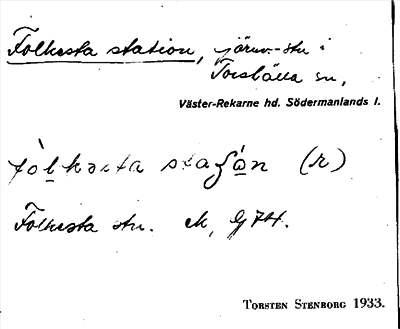 Folkesta station, järnv.-stn i
Torshälla sn,
Väster-Rekarne hd. Södermanlands l.
(r)
Folkesta stn. ek, G 74.
TORSTEN STENBORG 1933.